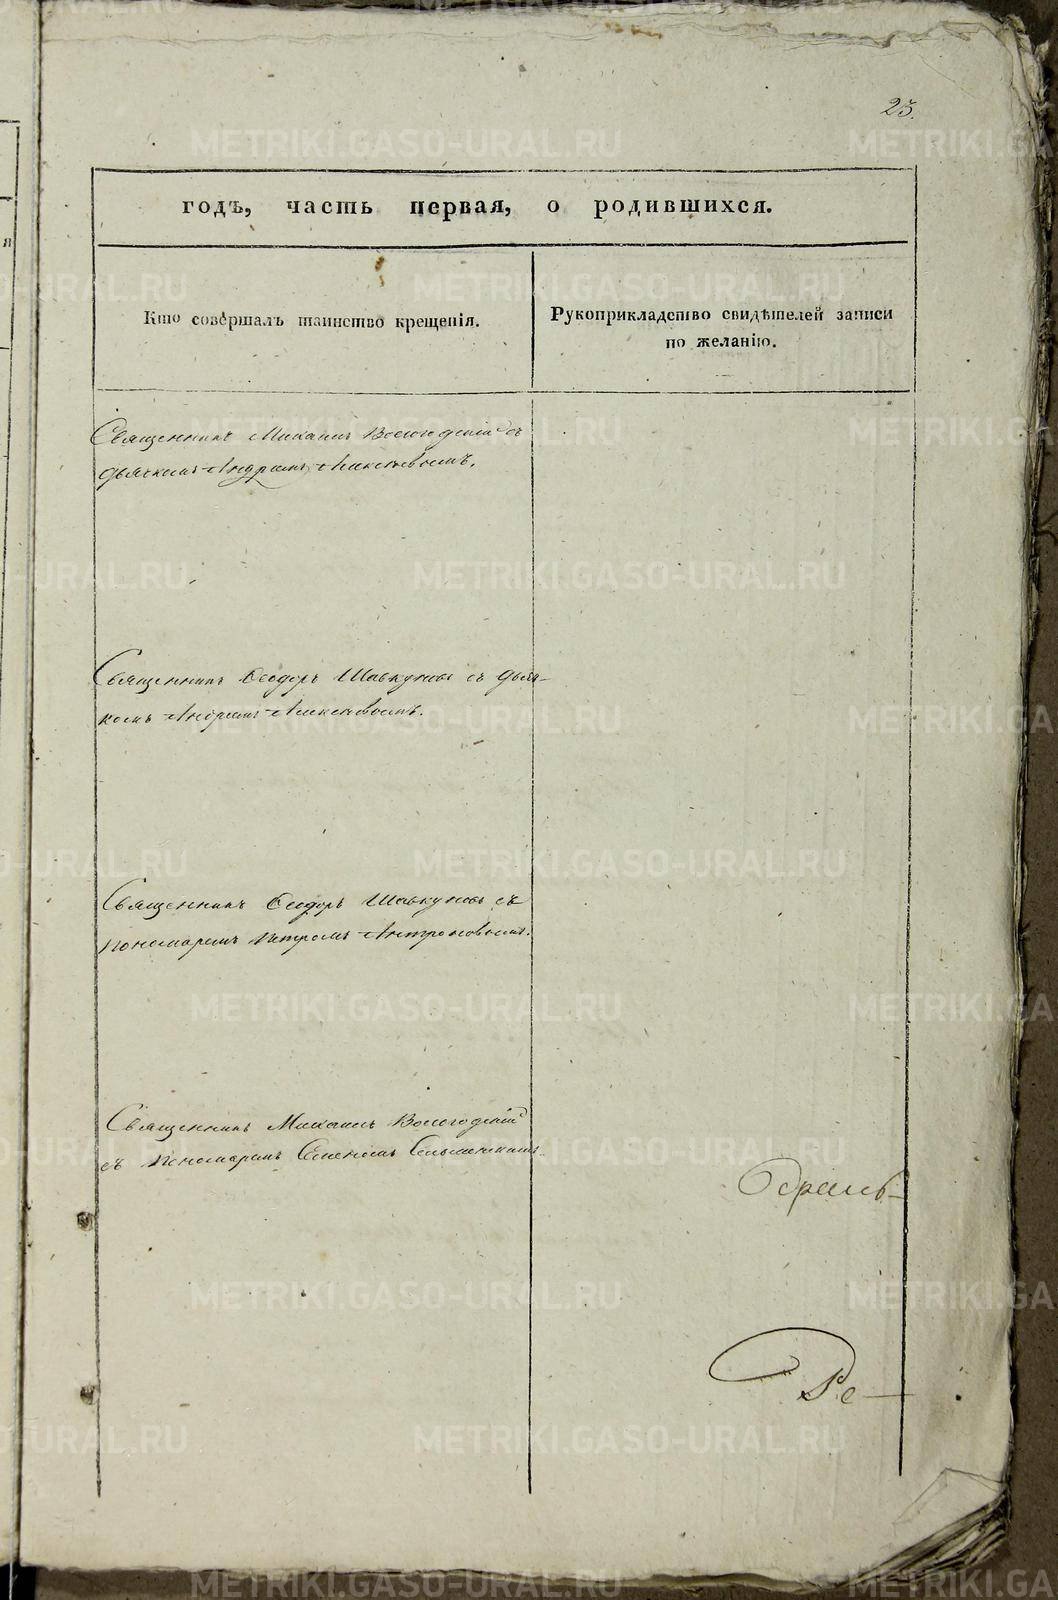 23.
годъ, часть первая, о родившихся.
Кто совершалъ таинство крещенія.
Рукоприкладство свидѣтелей записи
по желанію.
Священникъ Михаилъ Вологодскій съ
дьячкомъ Андреемъ
Священникъ Ѳеодоръ Шавкуновъ съ дьяч-
комъ Андреемъ
Священникъ Ѳеодоръ Шавкуновъ съ
пономаремъ Петромъ Антроповымъ.
Священникъ Михаилъ Вологодскій
съ пономаремъ Семеномъ
METRIKI.GASO-URAL.RU